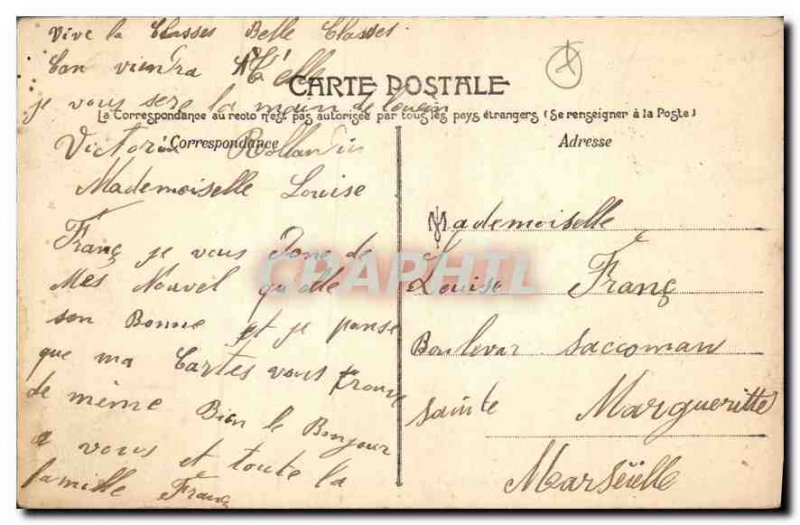 Vive la Classes Belle Classes
Can viendra t'elle
CARTE POSTALE
je vous sere la main de
La Correspondance au recto n'est pas autorisée par tous les pays étrangers (Se renseigner à la Poste)
Correspondance
Victorin
Mademoiselle Louise
Franç je vous Done de
Mes Nouvel qu'elle
son Bonne et je panse
que ma Cartes vous trouve
de même Bien le Bonjour
a vous et toute la
famille Franç
Adresse
Mademoiselle
Louise Franç
Boulevar Saccoman
Sainte Margueritte
Marseïelle
CPAPHIL